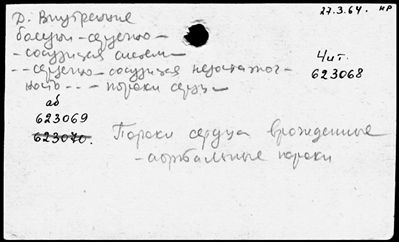 27.3.64. нр
Д. Внутренние
болезни – сердечно –
– сосудистая система –
– – сердечно – сосудистая недостаточ-
ность – – – пороки сердца –
Чит.
623068
аб
623069
623070.
Пороки сердца врожденные
– аортальные пороки